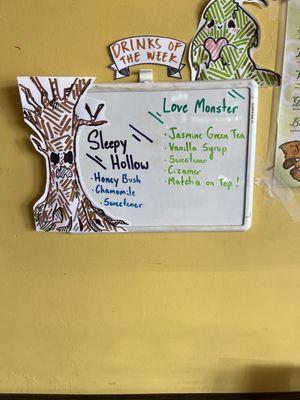 DRINKS OF
THE WEEK
Sleepy
Hollow
• Honey Bush
• Chamomile
• Sweetener
Love Monster
• Jasmine Green Tea
• Vanilla Syrup
• Sweetener
• Creamer
• Matcha on Top!